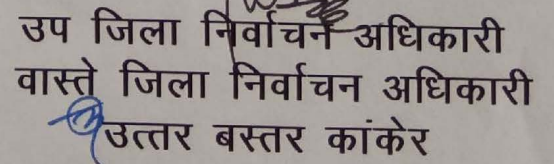 उप जिला निर्वाचन अधिकारी
वास्ते जिला निर्वाचन अधिकारी
उत्तर बस्तर कांकेर